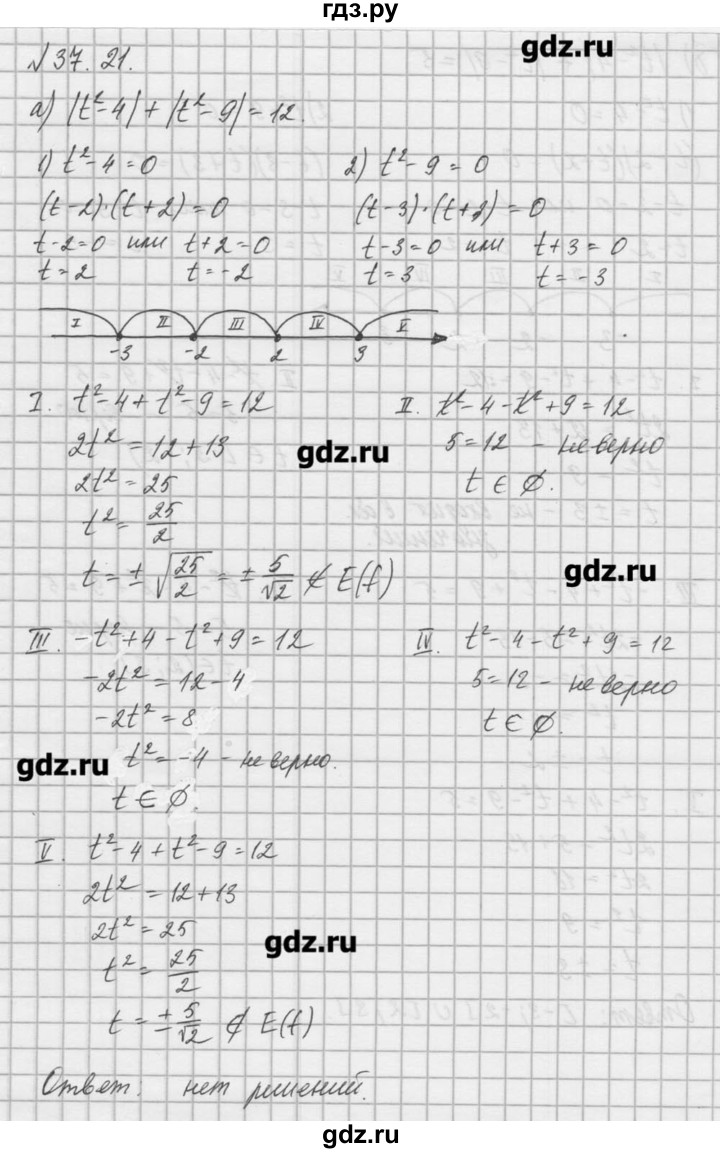 гдз.ру
gdz.ru
№ 37. 21.
а) |t²-4| + |t²-9| = 12.
1) t²-4=0
(t-2)·(t+2)=0
t-2=0 или t+2=0
t=2 t=-2
2) t²-9=0
(t-3)·(t+3)=0
t-3=0 или t+3=0
t=3 t=-3
I II III IV V
-3 -2 2 3
I. t²-4+t²-9=12
2t²=12+13
2t²=25
t²=25/2
t=±√(25/2)=±5/√2 ∉ E(f)
II. t²-4-t²+9=12
5=12 - неверно
t∈∅.
gdz.ru
gdz.ru
III. -t²+4-t²+9=12
-2t²=12-4
-2t²=8
t²=-4 - неверно.
t∈∅.
IV. t²-4-t²+9=12
5=12 - неверно
t∈∅.
gdz.ru
V. t²-4+t²-9=12
2t²=12+13
2t²=25
t²=25/2
t=±5/√2 ∉ E(f)
gdz.ru
Ответ: нет решений.
gdz.ru